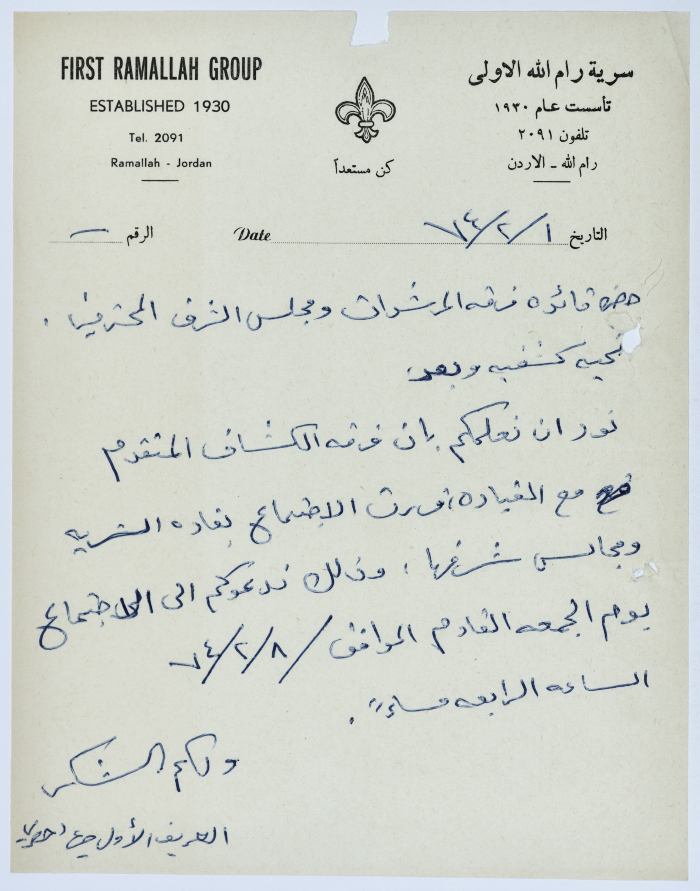 FIRST RAMALLAH GROUP
ESTABLISHED 1930
Tel. 2091
Ramallah - Jordan
سرية رام الله الاولى
تأسست عام ١٩٣٠
تلفون ٢٠٩١
رام الله - الاردن
كن مستعداً
التاريخ ٧٤/٢/١ Date
الرقم —
حضرة قائدة فرقه المرشدات ومجلس الشرف المحترمين .
تحيه كشفيه وبعد،
نود ان نعلمكم بان فرقه الكشاف المتقدم
مع القياده قررت الاجتماع بقاده السريه
ومجالس شرفها ، وذلك ندعوكم الى الاجتماع
يوم الجمعه القادم الموافق ٧٤/٢/٨
الساعه الرابعه مساءً .
ولكم الشكر
العريف الأول